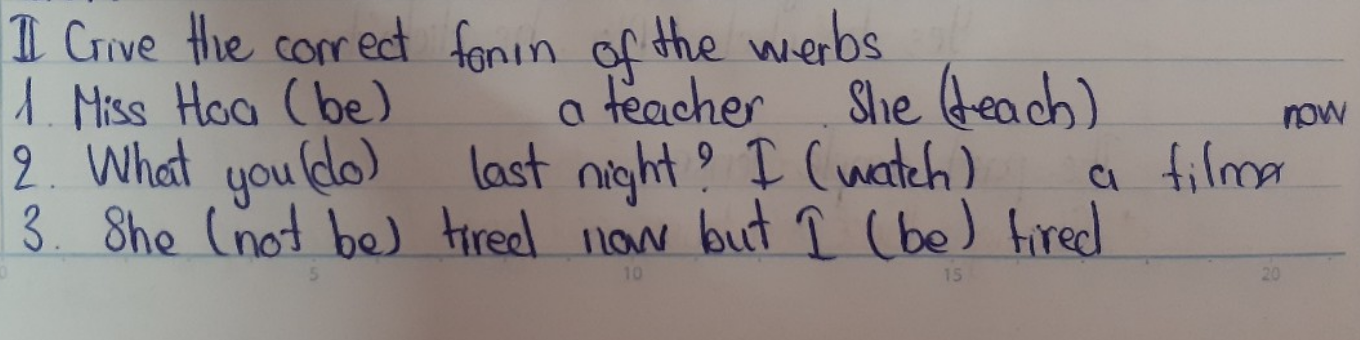 II Give the correct fonin of the werbs
1. Miss Hoa (be) a teacher. She (teach) now
2. What you (do) last night? I (watch) a film
3. She (not be) tired now but I (be) tired
5 10 15 20